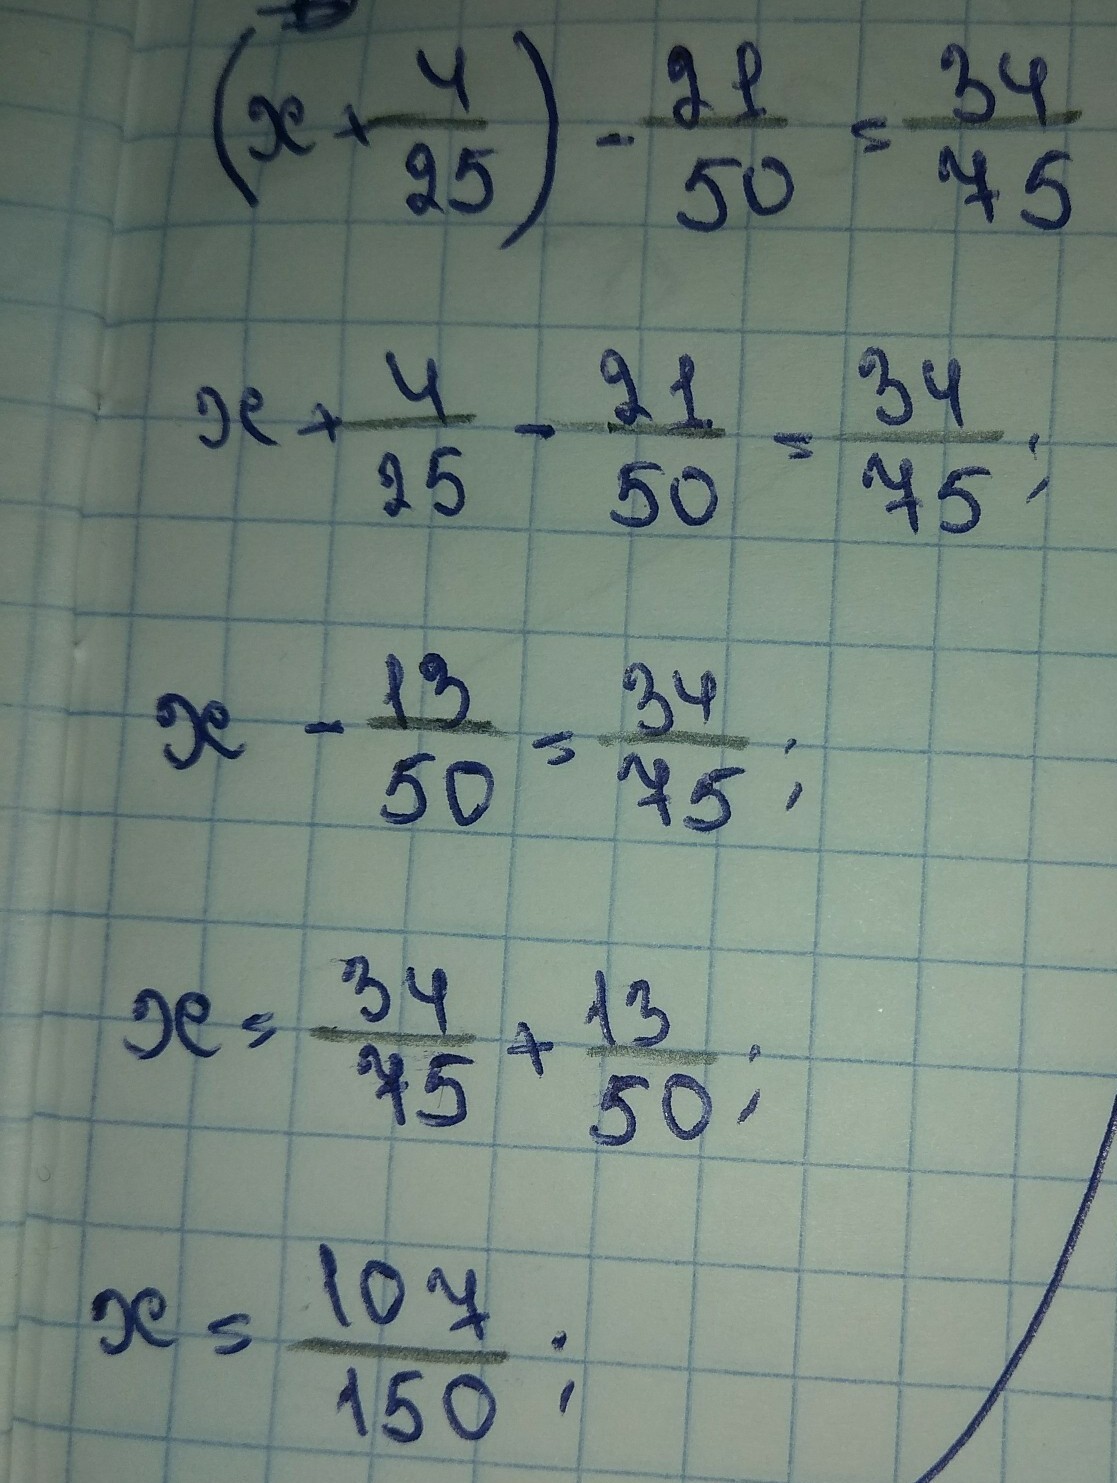 (x + 4/25) - 21/50 = 34/75
x + 4/25 - 21/50 = 34/75;
x - 13/50 = 34/75;
x = 34/75 + 13/50;
x = 107/150;